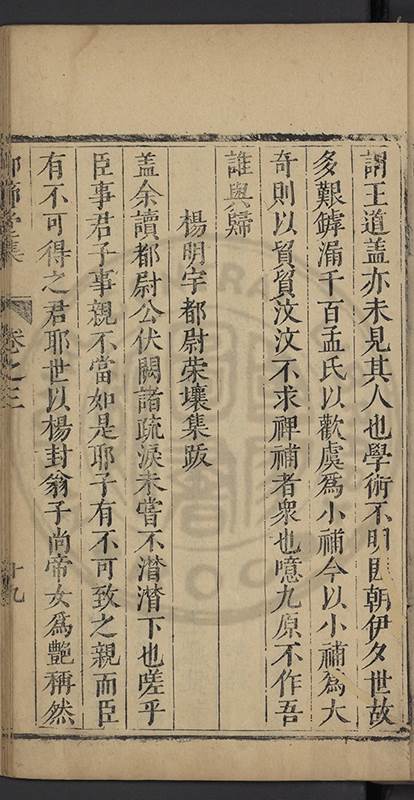 謂王道盖亦未見其人也學術不明且朝伊夕世故
多艱罅漏千百孟氏以歡虞爲小補今以小補爲大
奇則以貿貿汶汶不求裨補者衆也噫九原不作吾
誰與歸
楊明宇都尉榮壤集跋
盖余讀都尉公伏闕諸疏淚未嘗不潸潸下也嗟乎
臣事君子事親不當如是耶子有不可致之親而臣
有不可得之君耶世以楊封翁子尚帝女爲艷稱然
集 卷之三 十九